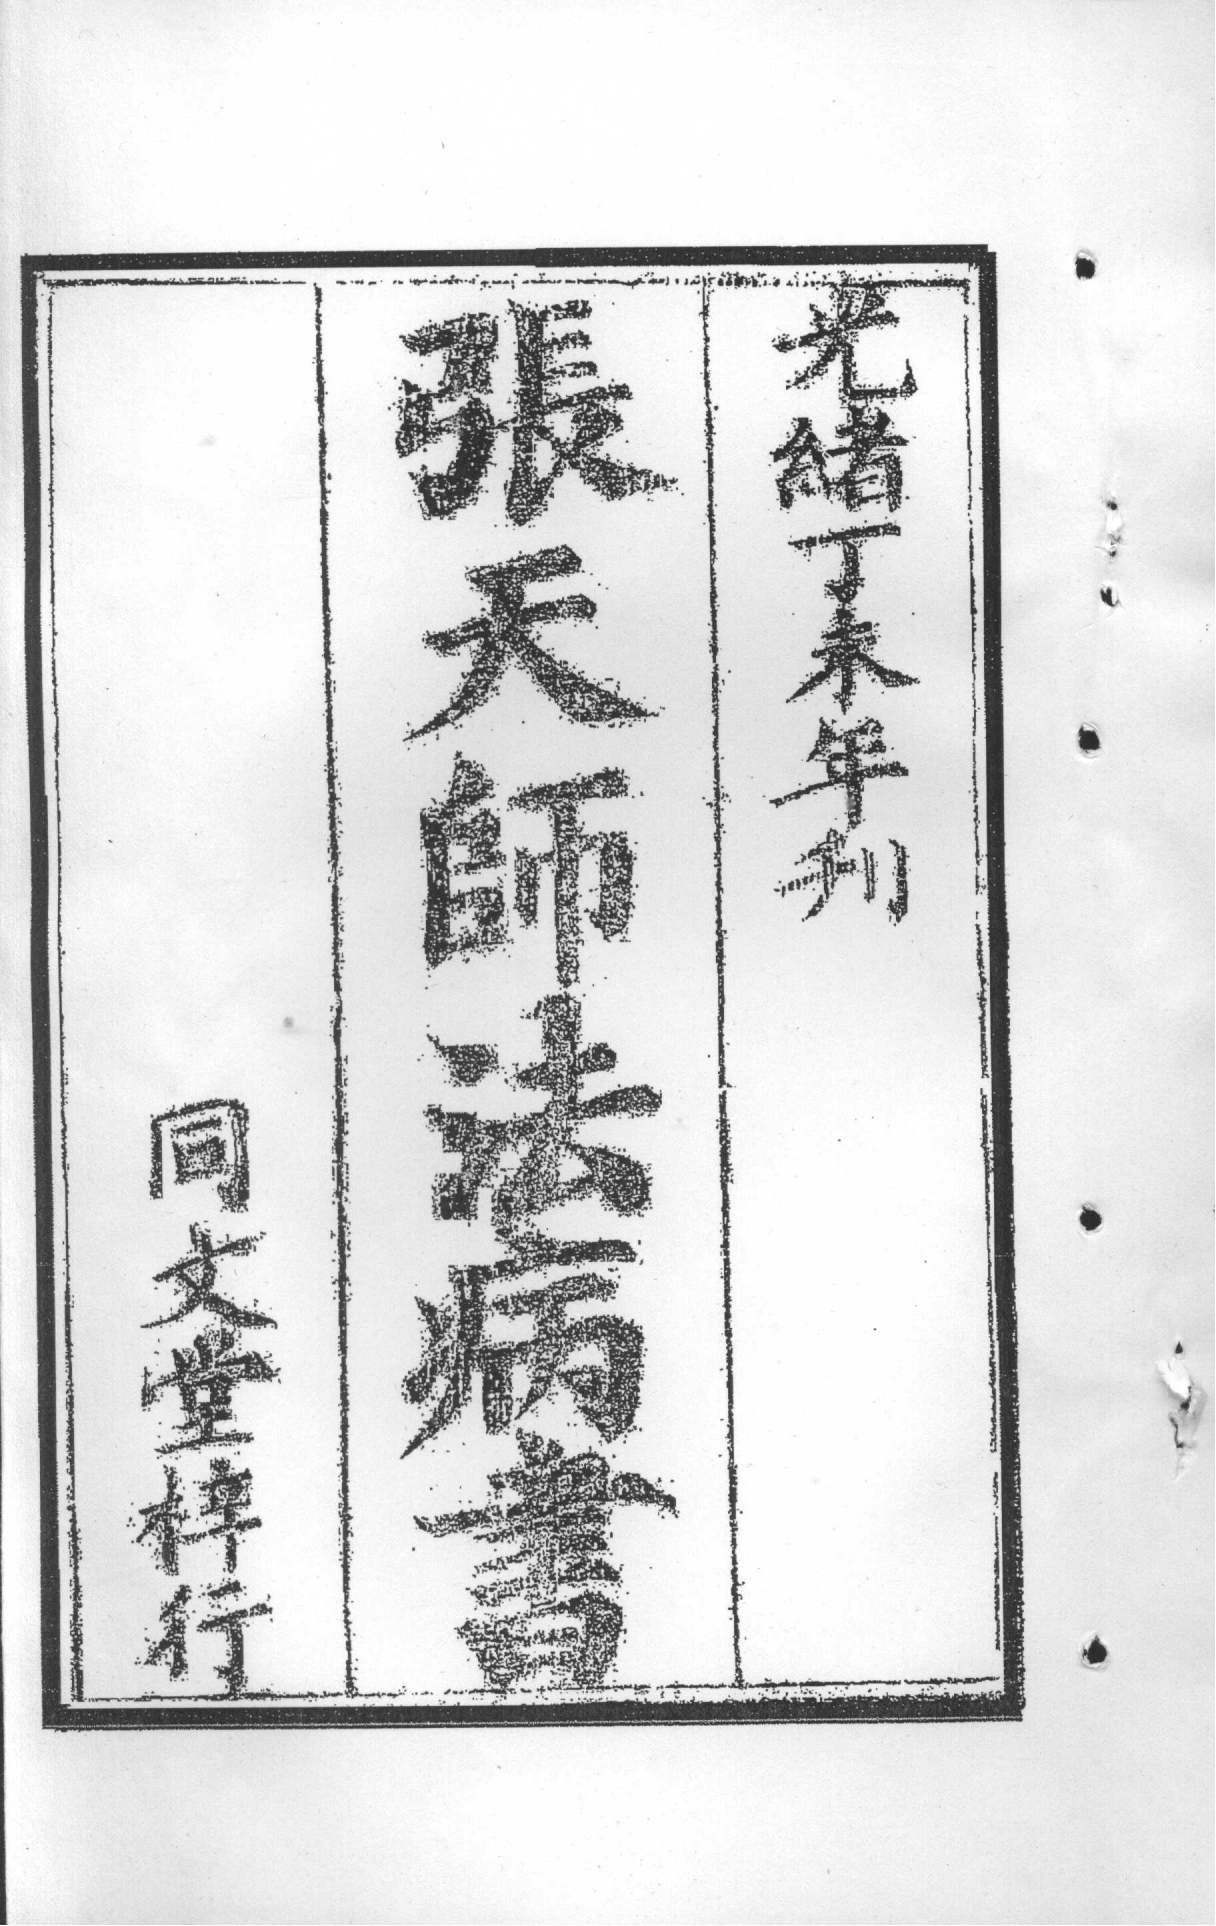 光緒丁未年刋
張天師法病書
同文堂梓行